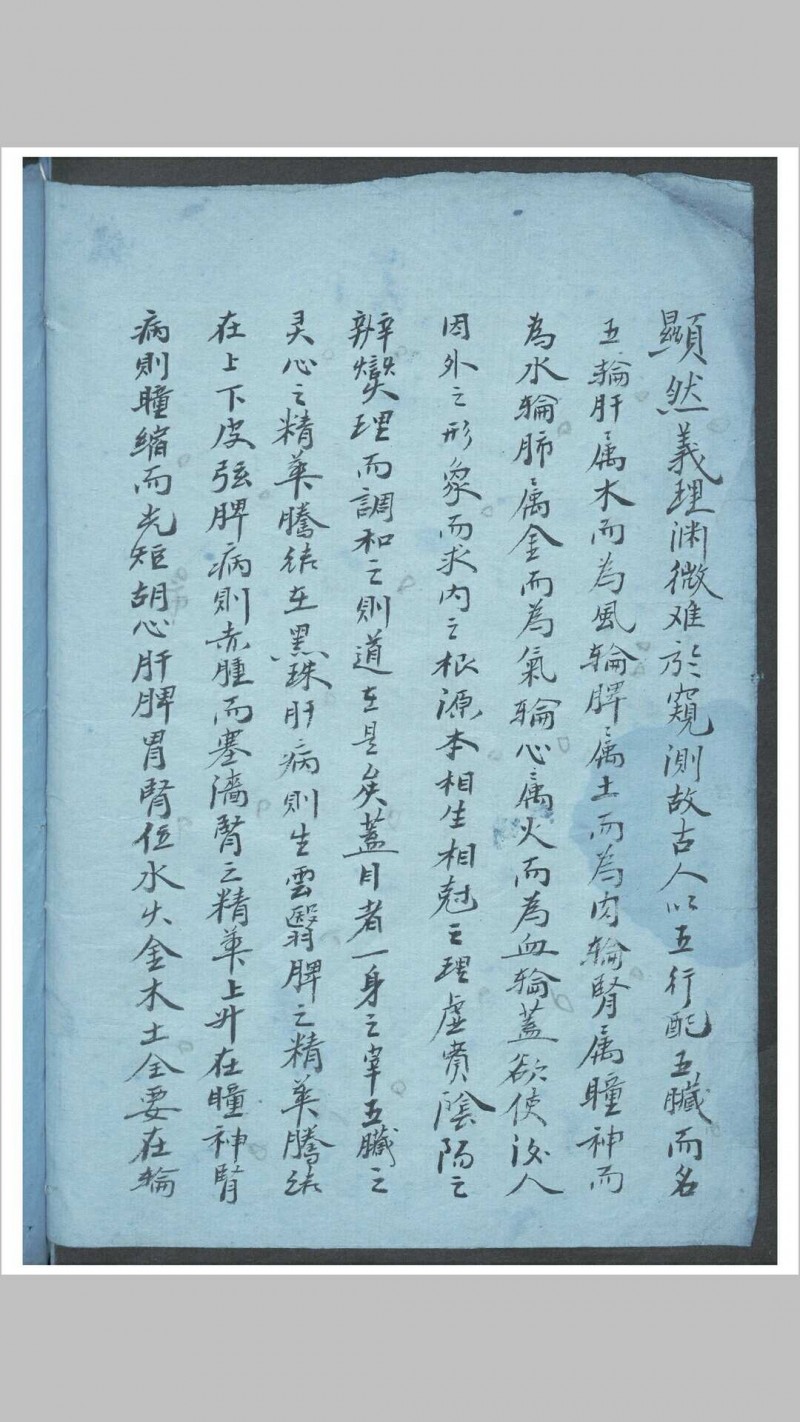 顯然義理渊微难於窺測故古人以五行配五臟而名
五輪肝属木而為風輪脾属土而為肉輪腎属瞳神而
為水輪肺属金而為氣輪心属火而為血輪蓋欲使後人
因外之形象而求内之根源本相生相尅之理虚實陰陽之
辨燮理而調和之則道在是矣蓋目者一身之宰五臟之
灵心之精華騰結在黑珠肝病則生雲翳脾之精華騰結
在上下皮弦脾病則赤腫而塞濇腎之精華上升在瞳神腎
病則瞳縮而光短胡心肝脾胃腎位水火金木土全要在輪